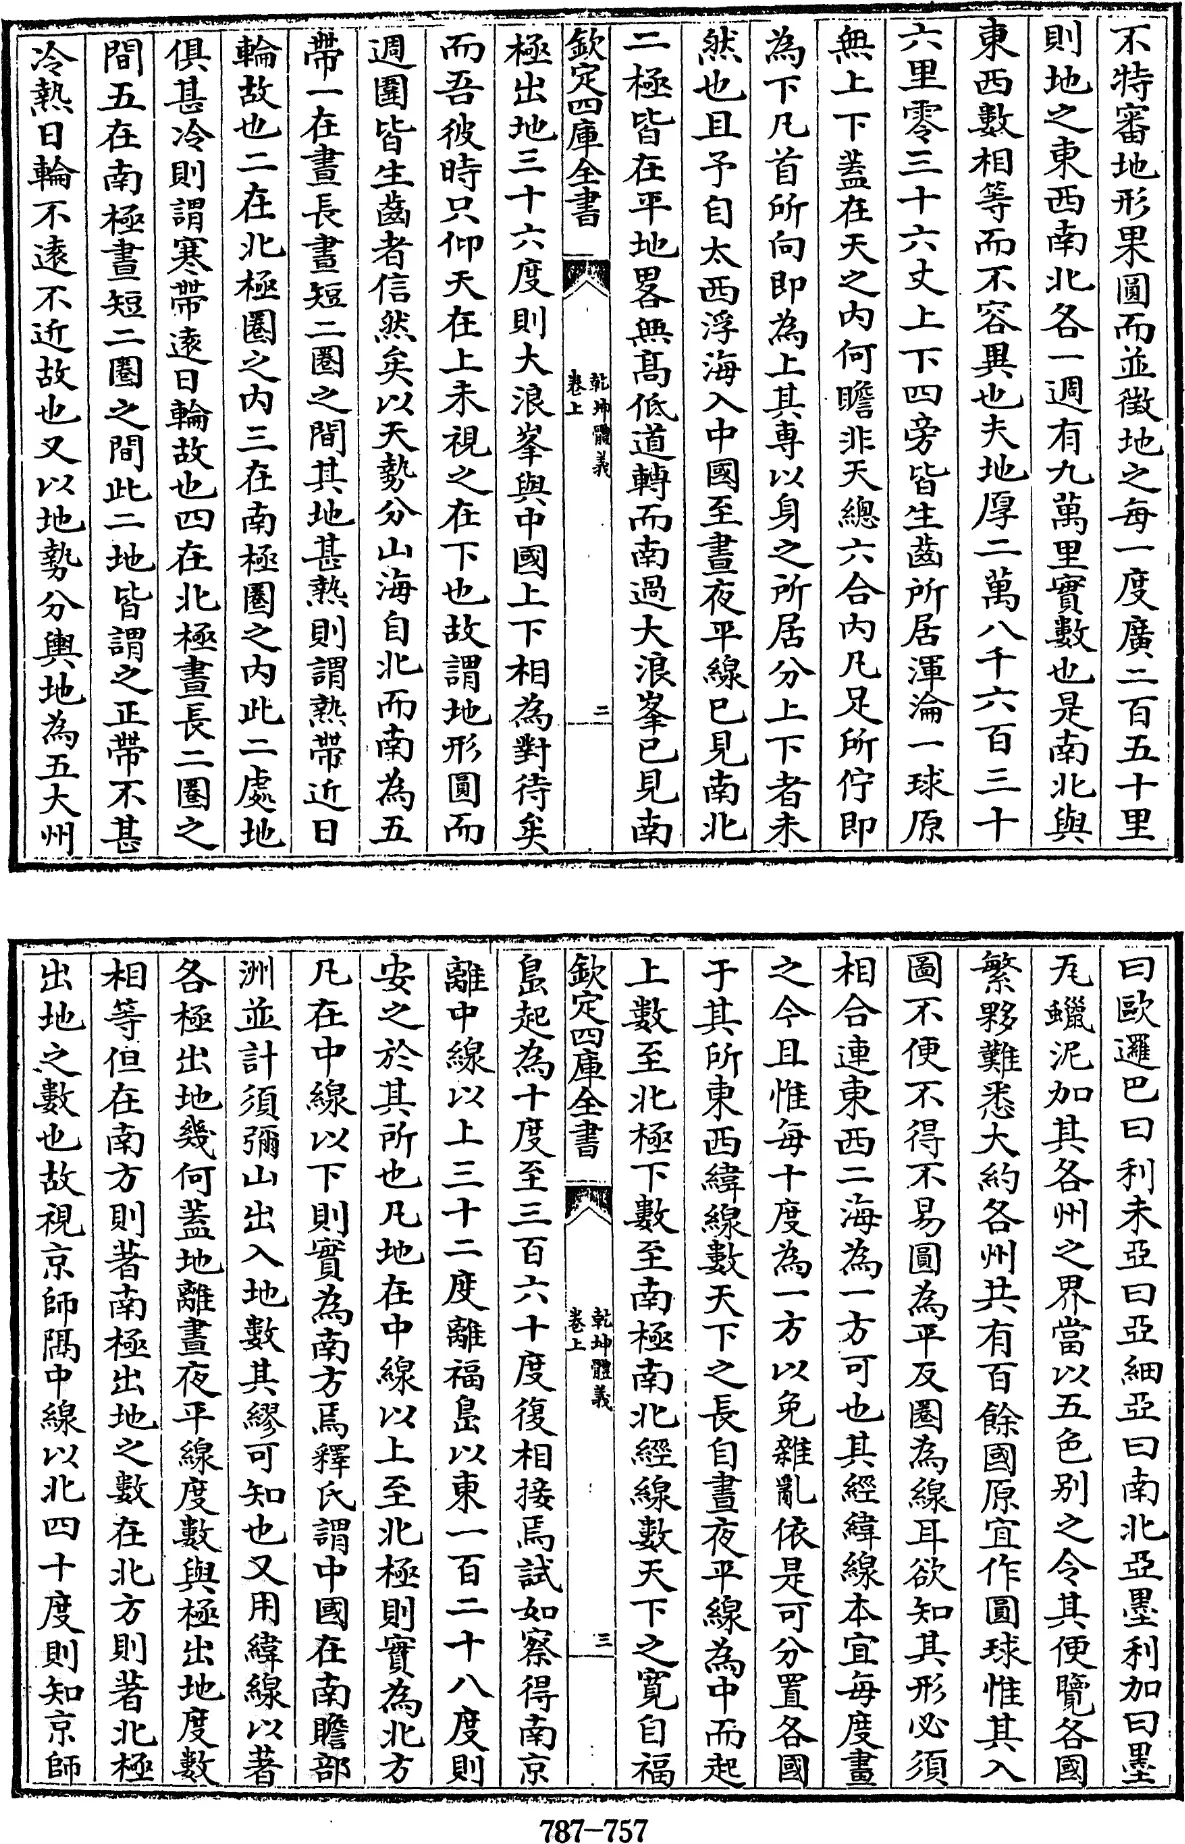 不特審地形果圓而並徵地之每一度廣二百五十里
則地之東西南北各一週有九萬里實數也是南北與
東西數相等而不容異也夫地厚二萬八千六百三十
六里零三十六丈上下四旁皆生齒所居渾淪一球原
無上下蓋在天之內何瞻非天總六合內凡足所佇即
為下凡首所向即為上其專以身之所居分上下者未
然也且予自太西浮海入中國至晝夜平線已見南北
二極皆在平地畧無髙低道轉而南過大浪峯已見南
欽定四庫全書
乾坤體義
卷上
二
極出地三十六度則大浪峯與中國上下相為對待矣
而吾彼時只仰天在上未視之在下也故謂地形圓而
週圍皆生齒者信然矣以天勢分山海自北而南為五
帶一在晝長晝短二圈之間其地甚熱則謂熱帶近日
輪故也二在北極圈之內三在南極圈之內此二處地
俱甚冷則謂寒帶遠日輪故也四在北極晝長二圈之
間五在南極晝短二圈之間此二地皆謂之正帶不甚
冷熱日輪不遠不近故也又以地勢分輿地為五大州
曰歐邏巴曰利未亞曰亞細亞曰南北亞墨利加曰墨
瓦蠟泥加其各州之界當以五色别之令其便覽各國
繁夥難悉大約各州共有百餘國原宜作圓球惟其入
圖不便不得不易圓為平反圈為線耳欲知其形必須
相合連東西二海為一方可也其經緯線本宜每度畫
之今且惟每十度為一方以免雜亂依是可分置各國
于其所東西緯線數天下之長自晝夜平線為中而起
上數至北極下數至南極南北經線數天下之寬自福
欽定四庫全書
乾坤體義
卷上
三
島起為十度至三百六十度復相接焉試如察得南京
離中線以上三十二度離福島以東一百二十八度則
安之於其所也凡地在中線以上至北極則實為北方
凡在中線以下則實為南方焉釋氏謂中國在南瞻部
洲並計須彌山出入地數其繆可知也又用緯線以著
各極出地幾何蓋地離晝夜平線度數與極出地度數
相等但在南方則著南極出地之數在北方則著北極
出地之數也故視京師隔中線以北四十度則知京師
787-757